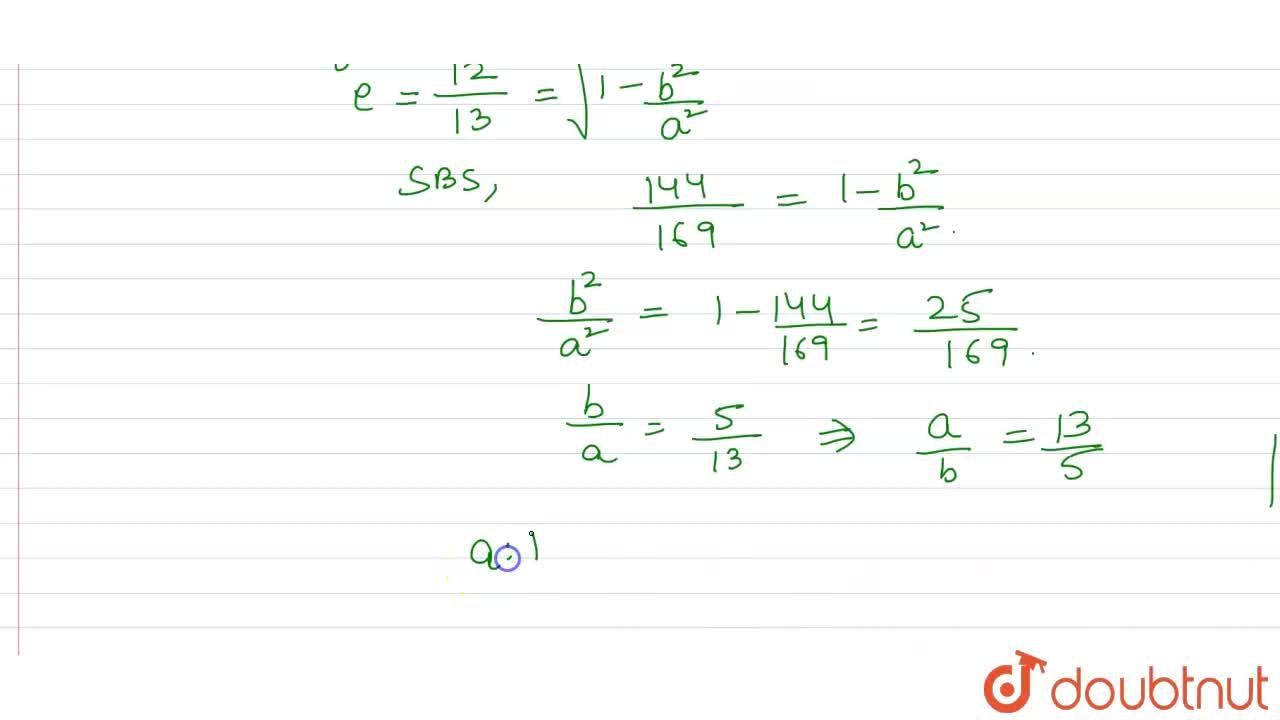 e = 12/13 = √(1 - b²/a²)
SBS, 144/169 = 1 - b²/a².
b²/a² = 1 - 144/169 = 25/169.
b/a = 5/13 ⇒ a/b = 13/5
a:
doubtnut